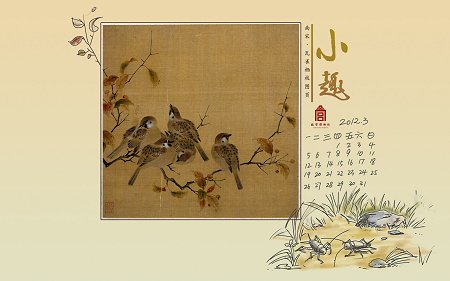 小趣
南宋·瓦雀栖枝图页
故宫博物院
2012.3
一 二 三 四 五 六 日
1 2 3 4
5 6 7 8 9 10 11
12 13 14 15 16 17 18
19 20 21 22 23 24 25
26 27 28 29 30 31